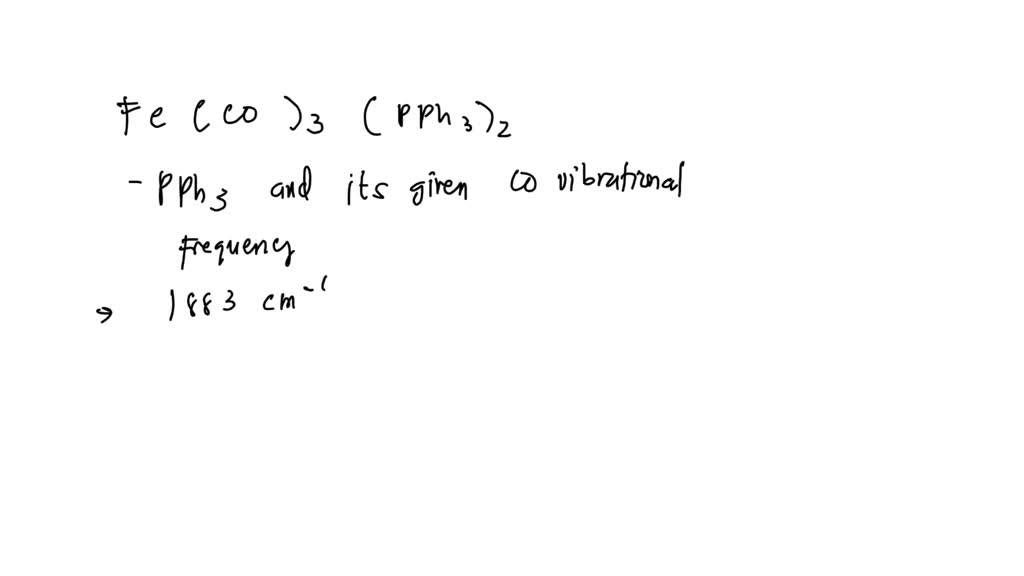 Fe (CO)3 (PPh3)2
- PPh3 and its given CO vibrational
Frequency
→ 1883 cm-1